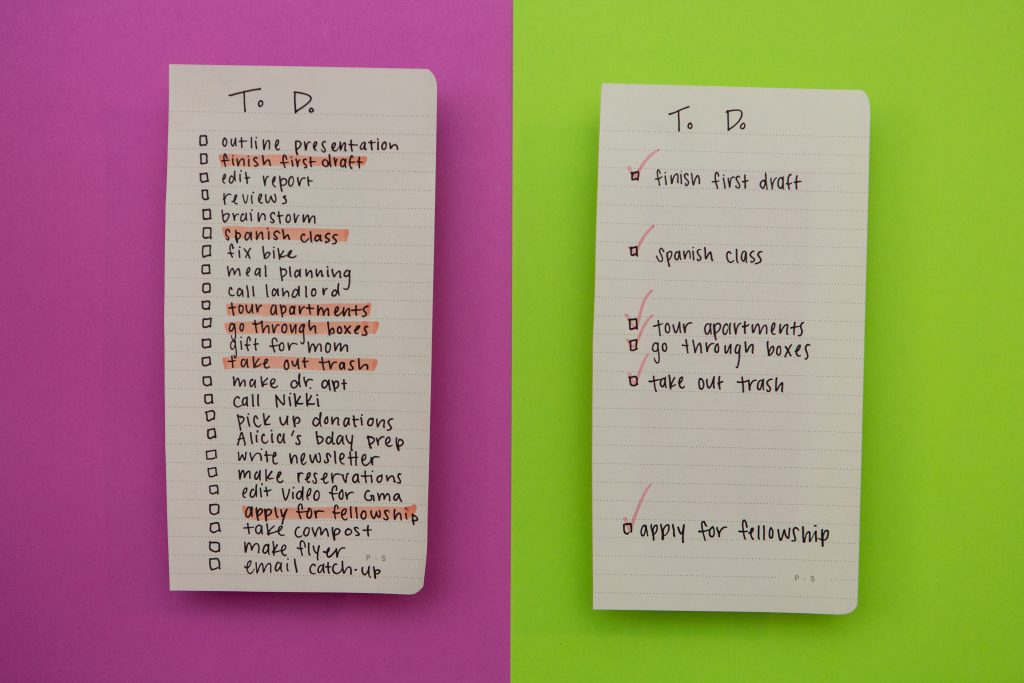 To Do
outline presentation
finish first draft
edit report
reviews
brainstorm
spanish class
fix bike
meal planning
call landlord
tour apartments
go through boxes
gift for mom
take out trash
make dr. apt
call Nikki
pick up donations
Alicia's bday prep
write newsletter
make reservations
edit video for Gma
apply for fellowship
take compost
make flyer
email catch-up
P-S
To Do
finish first draft
spanish class
tour apartments
go through boxes
take out trash
apply for fellowship
P-S